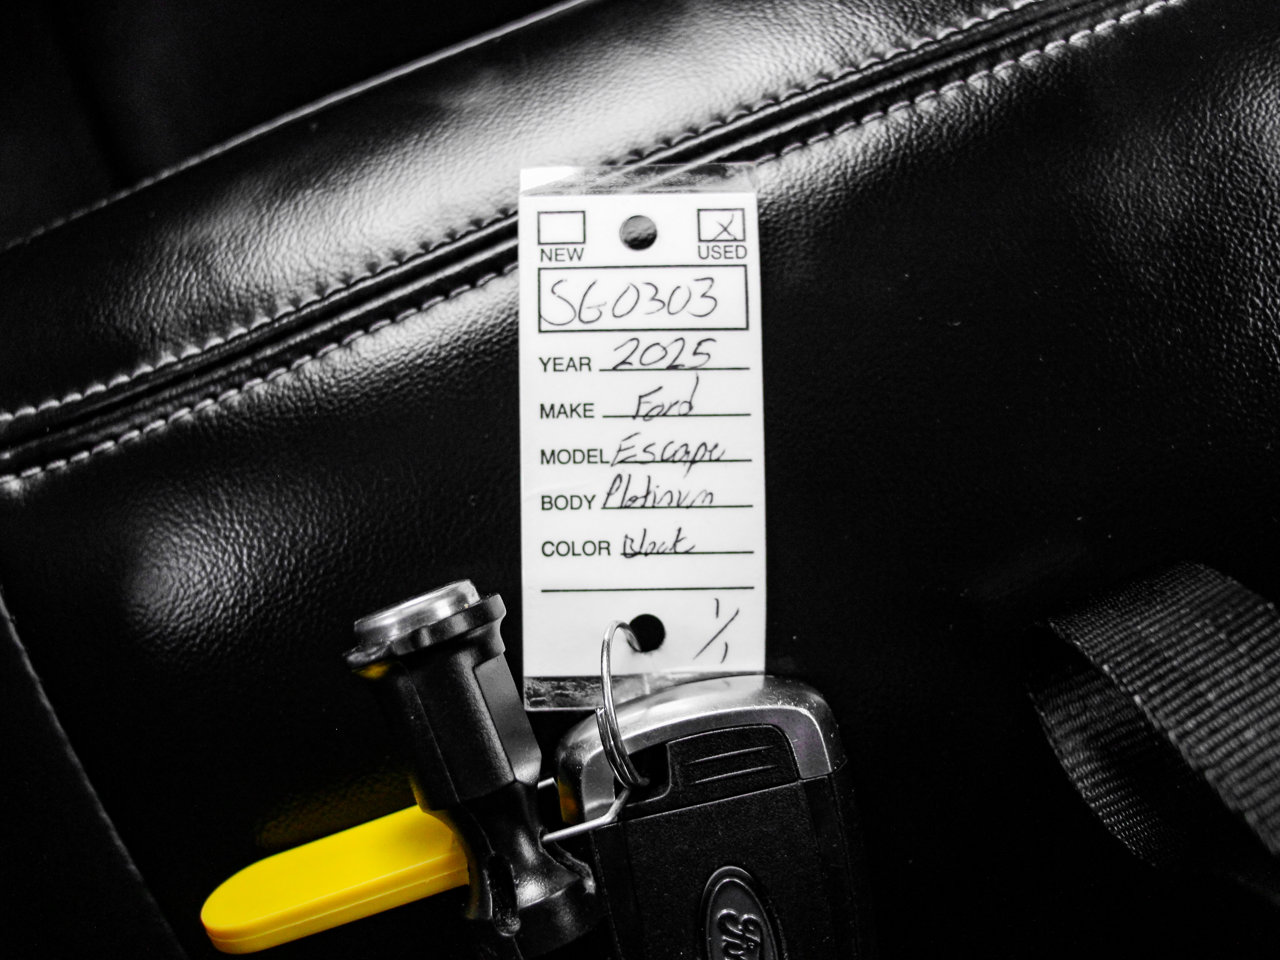 X
NEW USED
SG0303
YEAR 2025
MAKE Ford
MODEL Escape
BODY Platinum
COLOR Black
1/1
Ford